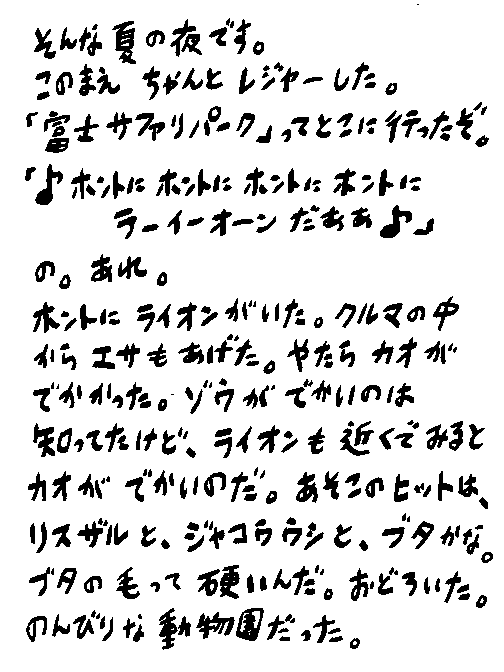 そんな夏の夜です。
このまえ ちゃんと レジャーした。
「富士サファリパーク」ってとこに行ったぞ。
「♪ホントに ホントに ホントに ホントに
ラーイーオーン だぁぁぁ♪」
の。あれ。
ホントに ライオンがいた。クルマの中
から エサも あげた。やたら カオが
でかかった。ゾウが でかいのは
知ってたけど、ライオンも 近くで みると
カオが でかいのだ。あそこのヒットは、
リスザルと、ジャコウウシと、ブタかな。
ブタの毛って 硬いんだ。おどろいた。
のんびりな 動物園だった。